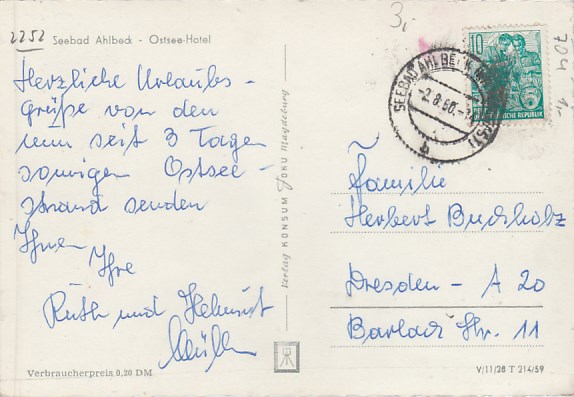 2252
Seebad Ahlbeck - Ostsee-Hotel
Herzliche Urlaubs-
grüße von den
nun seit 3 Tagen
sonnigen Ostsee-
strand senden
Ihnen
Ihre
Ruth und Helmut
Müller
Verbraucherpreis 0,20 DM
Verlag KONSUM FOKU Magdeburg
3,
704
10
SEEBAD AHLBECK
-2.8.60.-
DEUTSCHE DEMOKRATISCHE REPUBLIK
Familie
Herbert Buchholz
Dresden - A 20
Barlach Str. 11
V/11/28 T 214/59